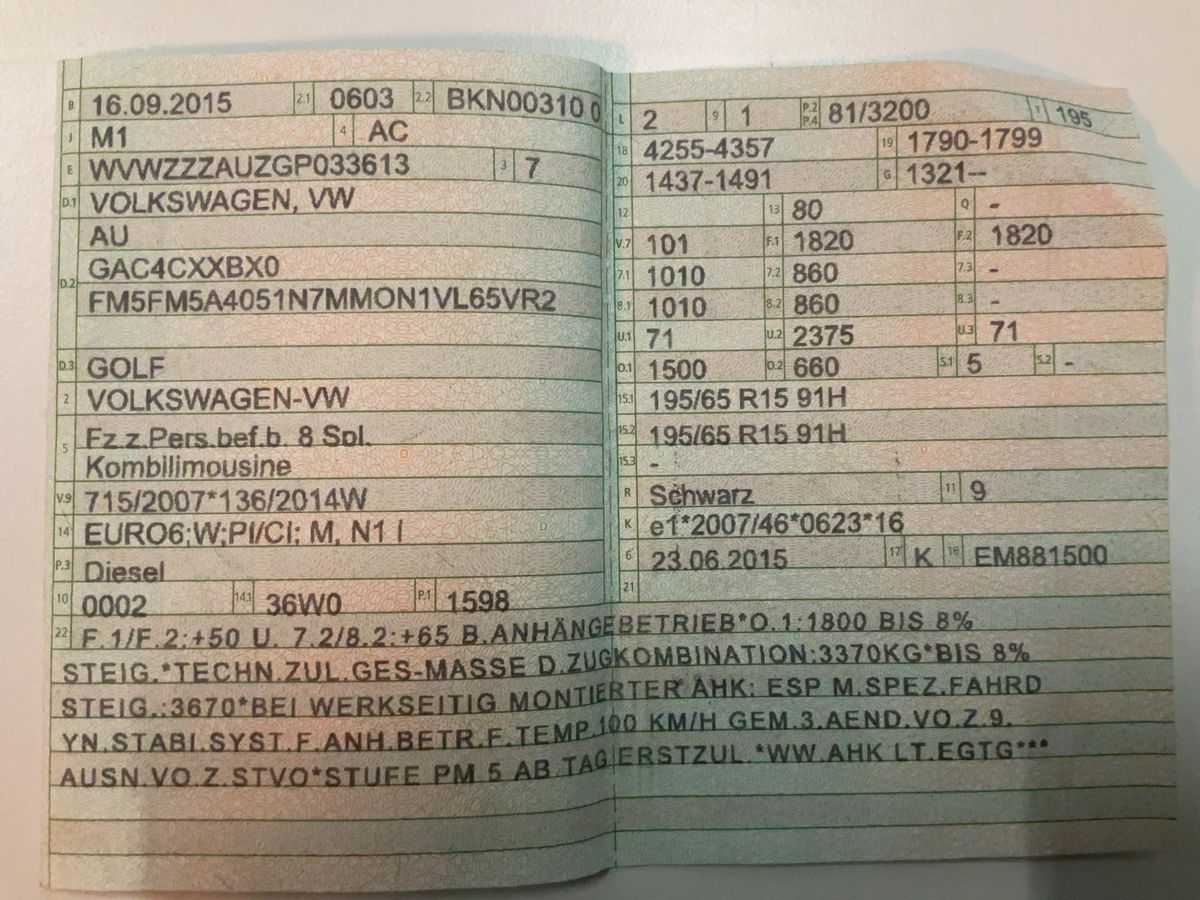 B 16.09.2015 2.1 0603 2.2 BKN00310 0
J M1 4 AC
E WVWZZZAUZGP033613 3 7
D.1 VOLKSWAGEN, VW
AU
D.2 GAC4CXXBX0
FM5FM5A4051N7MMON1VL65VR2
D.3 GOLF
2 VOLKSWAGEN-VW
5 Fz.z.Pers.bef.b. 8 Spl.
Kombilimousine
V.9 715/2007*136/2014W
14 EURO6;W;PI/CI; M, N1 I
P.3 Diesel
10 0002 14.1 36W0 P.1 1598
L 2 9 1 P.2 P.4 81/3200 T 195
18 4255-4357 19 1790-1799
20 1437-1491 G 1321--
12 13 80 Q -
V.7 101 F.1 1820 F.2 1820
7.1 1010 7.2 860 7.3 -
8.1 1010 8.2 860 8.3 -
U.1 71 U.2 2375 U.3 71
O.1 1500 O.2 660 S.1 5 S.2 -
15.1 195/65 R15 91H
15.2 195/65 R15 91H
15.3 -
R Schwarz 11 9
K e1*2007/46*0623*16
6 23.06.2015 17 K 16 EM881500
21
22 F.1/F.2:+50 U. 7.2/8.2:+65 B.ANHÄNGEBETRIEB*O.1:1800 BIS 8%
STEIG.*TECHN.ZUL.GES-MASSE D.ZUGKOMBINATION:3370KG*BIS 8%
STEIG.:3670*BEI WERKSEITIG MONTIERTER AHK: ESP M.SPEZ.FAHRD
YN.STABI.SYST.F.ANH.BETR.F.TEMP.100 KM/H GEM.3.AEND.VO.Z.9.
AUSN.VO.Z.STVO*STUFE PM 5 AB TAG ERSTZUL.*WW.AHK LT.EGTG***